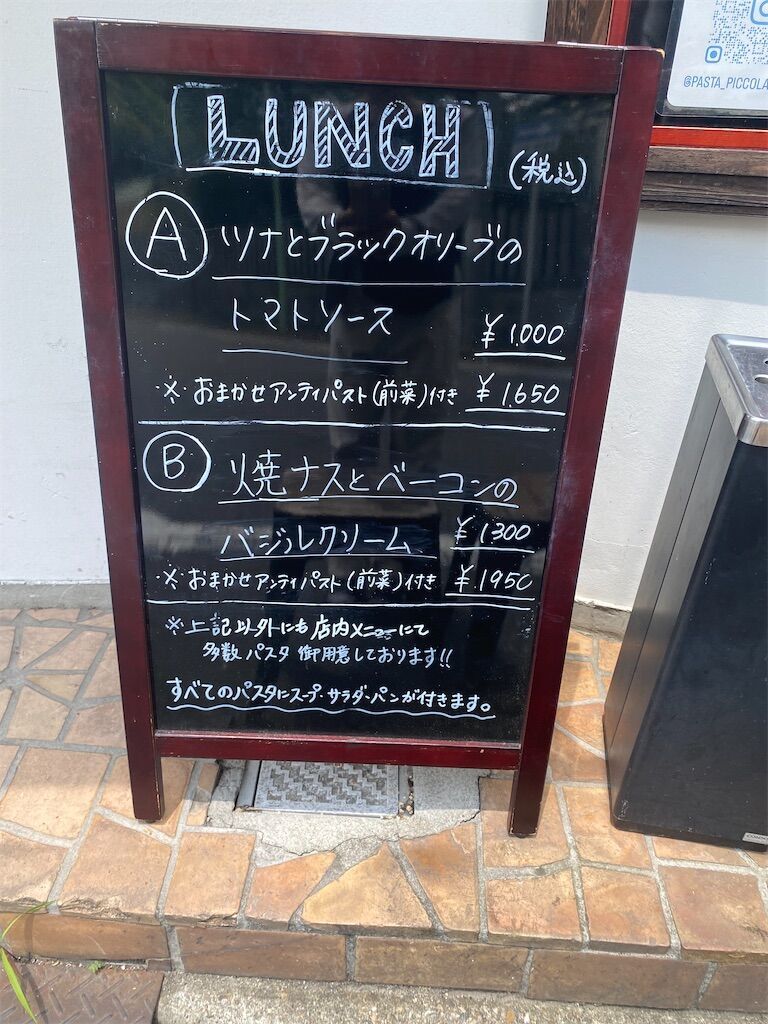 LUNCH
(税込)
A ツナとブラックオリーブの
トマトソース ¥1,000
※おまかせアンティパスト(前菜)付き ¥1,650
B 焼ナスとベーコンの
バジルクリーム ¥1300
※おまかせアンティパスト(前菜)付き ¥1950
※上記以外にも店内メニューにて
多数パスタ御用意しております!!
すべてのパスタにスープ・サラダ・パンが付きます。
@PASTA_PICCOLA